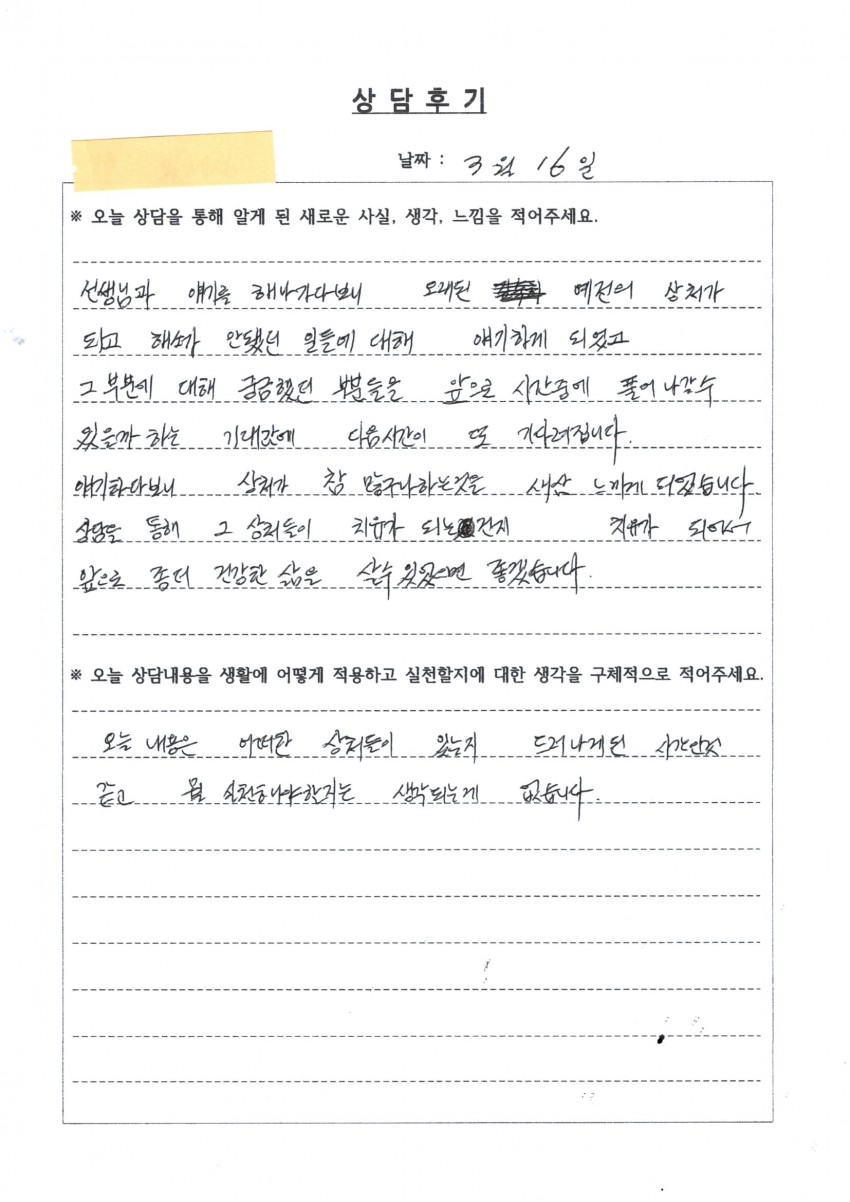 상담후기
날짜 : 3월 16일
※ 오늘 상담을 통해 알게 된 새로운 사실, 생각, 느낌을 적어주세요.
선생님과 얘기를 해나가다보니 오래된 예전의 상처가
되고 해소가 안됐던 일들에 대해 얘기하게 되었고
그 부분에 대해 궁금했던 부분들을 앞으로 시간중에 풀어 나갈수
있을까 하는 기대감에 다음시간이 또 기다려집니다.
얘기하다보니 상처가 참 많구나하는것을 새삼 느끼게 되었습니다
상담을 통해 그 상처들이 치유가 되는건지 치유가 되어서
앞으로 좀더 건강한 삶을 살수 있었으면 좋겠습니다.
※ 오늘 상담내용을 생활에 어떻게 적용하고 실천할지에 대한 생각을 구체적으로 적어주세요.
오늘 내용은 어떠한 상처들이 있는지 드러나게된 시간인것
같고 뭘 실천해야할지는 생각되는게 없습니다.